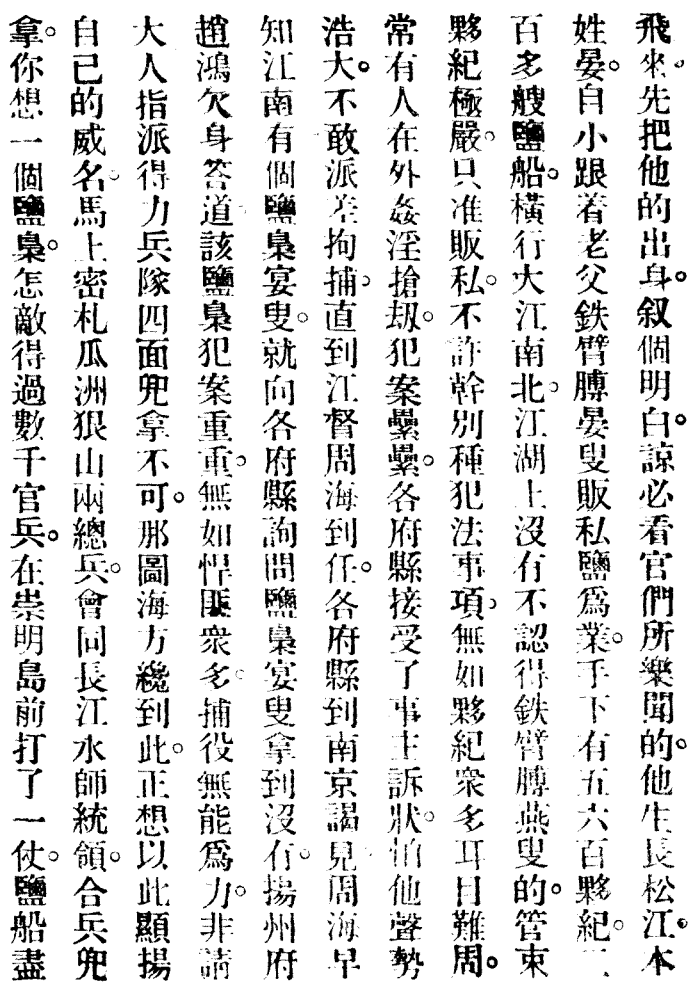 飛來先把他的出身。叙個明白。諒必看官們所樂聞的。他生長松江。本
姓晏。自小跟着老父鉄臂膊晏叟販私鹽爲業。手下有五六百夥紀。二
百多艘鹽船。橫行大江南北。江湖上沒有不認得鉄臂膊燕叟的。管束
夥紀極嚴。只准販私。不許幹別種犯法事項。無如夥紀衆多耳目難周。
常有人在外姦淫搶刼。犯案纍纍。各府縣接受了事主訴狀。怕他聲勢
浩大。不敢派差拘捕。直到江督周海到任。各府縣到南京謁見周海早
知江南有個鹽梟宴叟。就向各府縣詢問鹽梟宴叟拿到沒有。揚州府
趙鴻欠身答道該鹽梟犯案重重。無如悍匪衆多。捕役無能爲力。非請
大人指派得力兵隊四面兜拿不可。那圖海方纔到此。正想以此顯揚
自己的威名。馬上密札瓜洲狠山兩總兵。會同長江水師統領。合兵兜
拿。你想一個鹽梟。怎敵得過數千官兵。在崇明島前打了一仗。鹽船盡